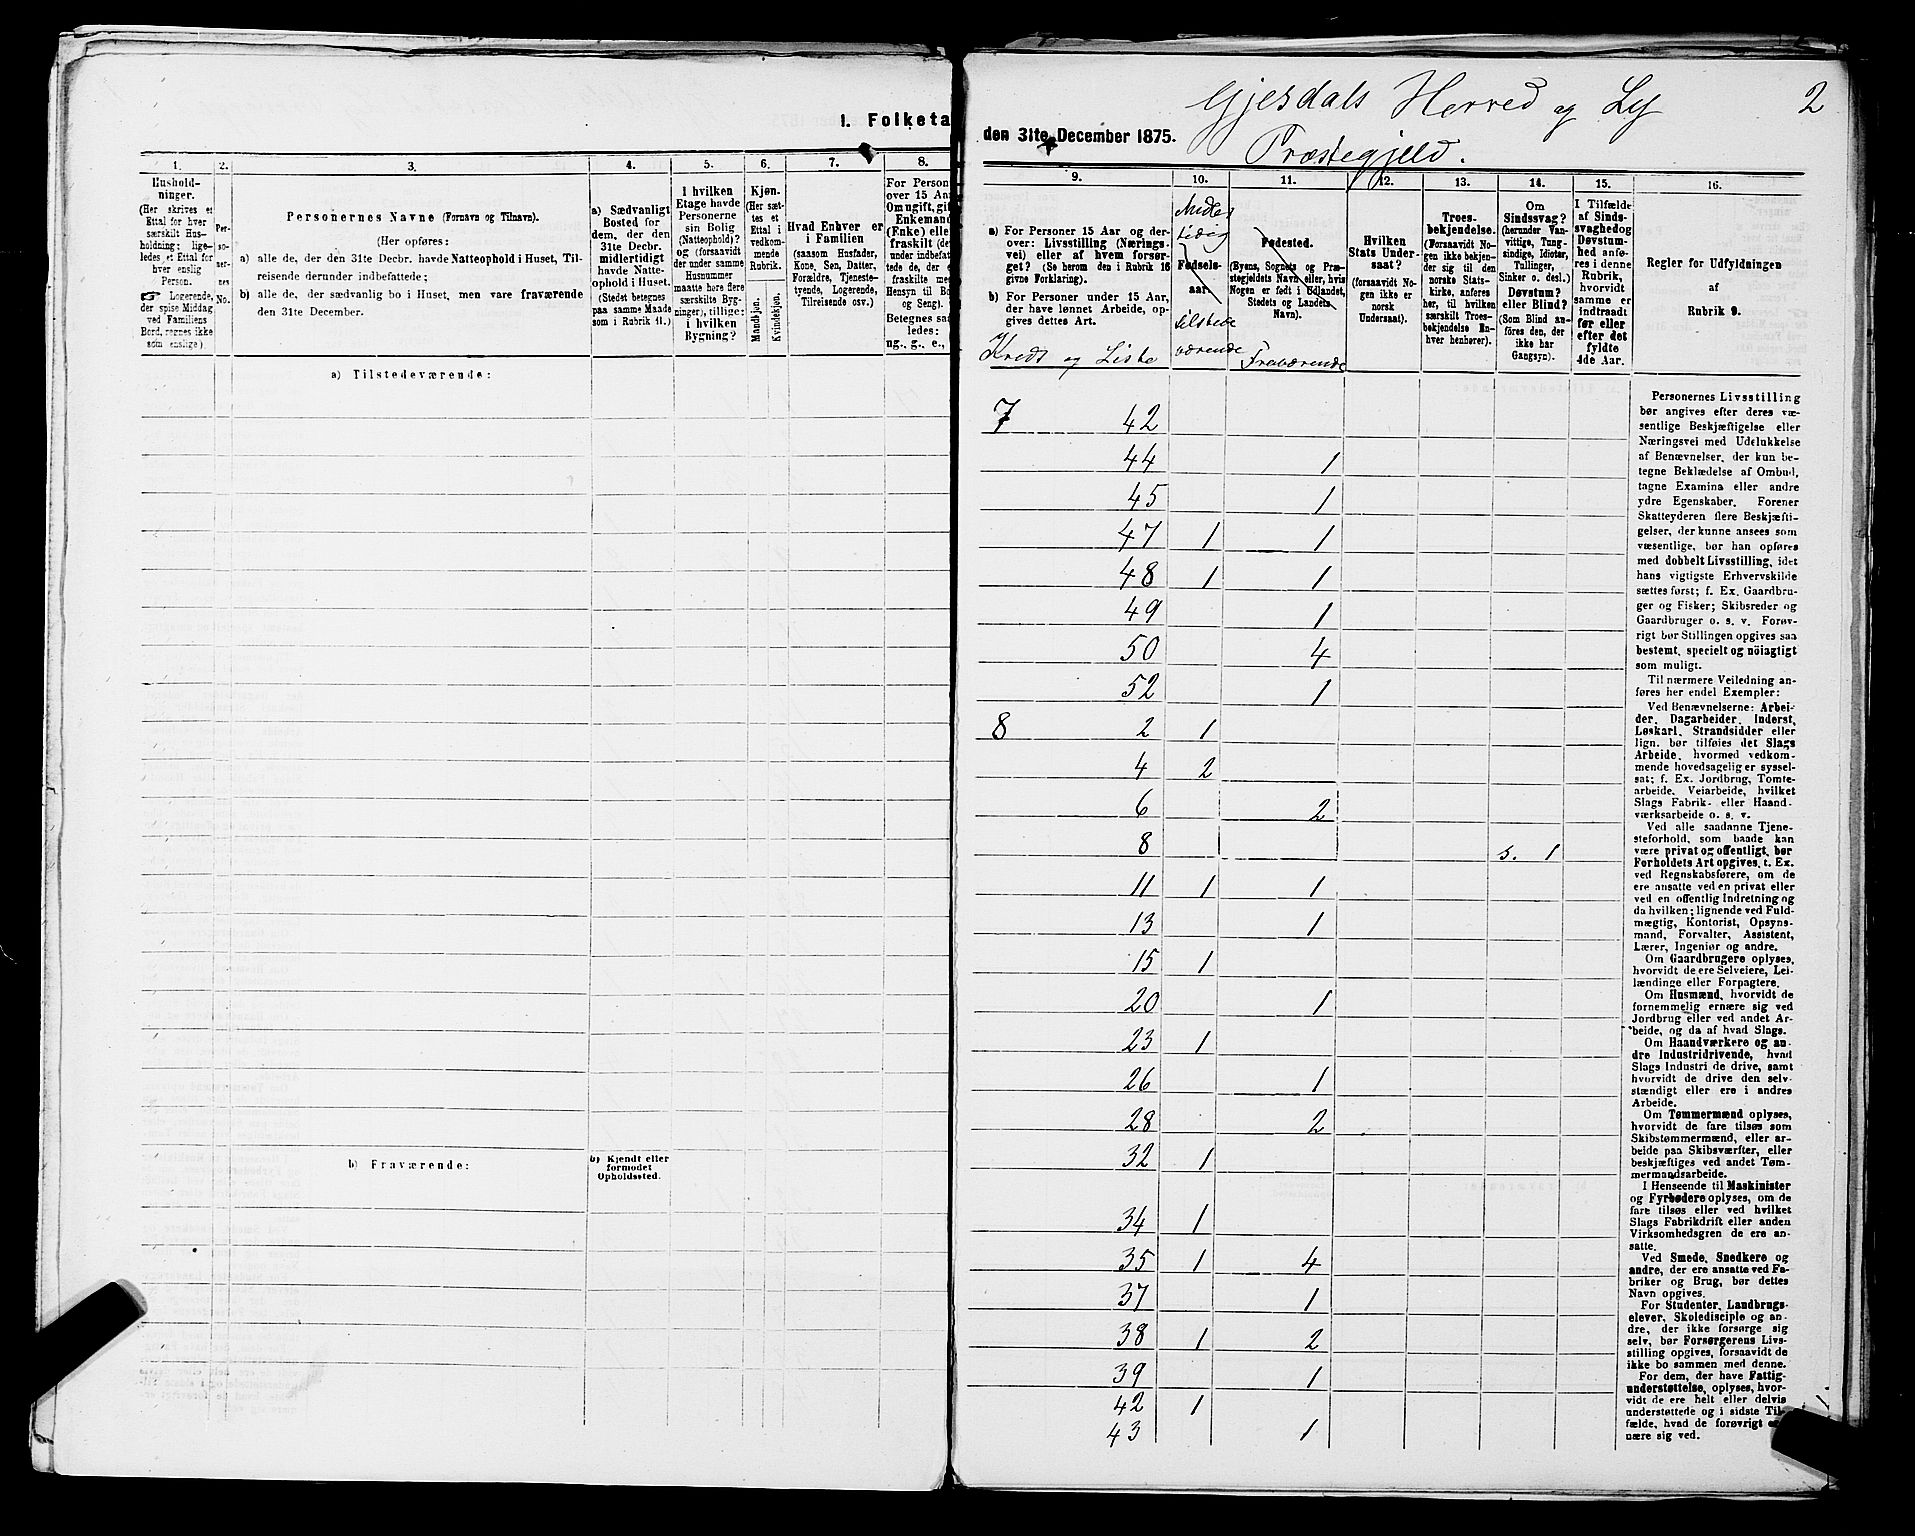 1. Folketa
1. 2. 3. 4. 5. 6. 7. 8.
Hushold-
ninger.
(Her skrives et
Ettal for hver
særskilt Hus-
holdning; lige-
ledes et Ettal for
hver enslig
Person.
☞ Logerende,
der spise Middag
ved Familiens
Bord, regnes ikke
som enslige).
Per-
so-
ner-
nes
No.
Personernes Navne (Fornavn og Tilnavn).
(Her opføres:
a) alle de, der den 31te Decbr. havde Natteophold i Huset, Til-
reisende derunder indbefattede;
b) alle de, der sædvanlig bo i Huset, men vare fraværende
den 31te December.
a) Sædvanligt
Bosted for
dem, der den
31te Decbr.
midlertidigt
havde Natte-
ophold i Huset.
(Stedet betegnes
paa samme Maade
som i Rubrik 11.)
I hvilken
Etage havde
Personerne
sin Bolig
(Natteophold)?
og (forsaavidt
der under samme
Husnummer
maatte høre flere
særskilte Byg-
ninger), tillige:
i hvilken
Bygning?
Kjøn.
(Her sæt-
tes et
Ettal i
vedkom-
mende
Rubrik.
Mandkjøn.
Kvindekjøn.
Hvad Enhver er
i Familien
(saasom Husfader,
Kone, Søn, Datter,
Forældre, Tjeneste-
tyende, Logerende,
Tilreisende osv.)
For Person
over 15 Aar
Om ugift, gif
Enkemand
(Enke) elle
fraskilt (de
under indbefat-
tede de, der e
fraskilte med
Hensyn til Bo
og Seng).
Betegnes saa
ledes:
ug., g., e.,
a) Tilstedeværende:
b) Fraværende:
b) Kjendt eller
formodet
Opholdssted.
Gjesdals Herred og Ly 2
den 31te December 1875.
Præstegjeld.
9. 10. 11. 12. 13. 14. 15. 16.
a) For Personer 15 Aar og der-
over: Livsstilling (Nærings-
vei) eller af hvem forsør-
get? (Se herom den i Rubrik 16
givne Forklaring).
b) For Personer under 15 Aar,
der have lønnet Arbeide, op-
gives dettes Art.
Kreds og Liste
Midler
tidig
Fødsels-
aar.
tilstede
værende
Fødested.
(Byens, Sognets og Præ-
stegjeldets Navn eller, hvis
Nogen er født i Udlandet,
Stedets og Landets
Navn).
Fraværende
Hvilken
Stats Under-
saat?
(forsaavidt No-
gen ikke er
norsk
Undersaat).
Troes-
bekjendelse.
(Forsaavidt No-
gen ikke bekjen-
der sig til den
norske Stats-
kirke, anføres
her, til hvilken
Troes-
bekjendelse En-
hver henhører).
Om
Sindssvag?
(herunder Van-
vittige, Tung-
sindige, Idioter,
Tullinger,
Sinker o. desl.)
Døvstum?
eller Blind?
(Som Blind an-
føres den, der
ikke har
Gangsyn).
I Tilfælde
af Sinds-
svaghed og
Døvstum-
hed anføres
i denne
Rubrik,
hvorvidt
samme er
indtraadt
før eller
efter det
fyldte
4de Aar.
Regler for Udfyldningen
af
Rubrik 9.
7 42
44 1
45 1
47 1 1
48 1 1
49 1
50 4
52 1
8 2 1
4 2
6 2
8 s. 1
11 1 1
13 1
15 1
20 1
23 1
26 1
28 2
32 1
34 1
35 1 4
37 1
38 1 2
39 1
42 1
43 1
Personernes Livsstilling
bør angives efter deres væ-
sentlige Beskjæftigelse eller
Næringsvei med Udelukkelse
af Benævnelser, der kun be-
tegne Beklædelse af Ombud,
tagne Examina eller andre
ydre Egenskaber. Forener
Skatteyderen flere Beskjæfti-
gelser, der kunne ansees som
væsentlige, bør han opføres
med dobbelt Livsstilling, idet
hans vigtigste Erhvervskilde
sættes først; f. Ex. Gaardbru-
ger og Fisker; Skibsreder og
Gaardbruger o. s. v. Forøv-
rigt bør Stillingen opgives saa
bestemt, specielt og nöiagtigt
som muligt.
Til nærmere Veiledning an-
føres her endel Exempler:
Ved Benævnelserne: Arbei-
der, Dagarbeider, Inderst,
Løskarl, Strandsidder eller
lign. bør tilføies det Slags
Arbeide, hvormed vedkom-
mende hovedsagelig er syssel-
sat; f. Ex. Jordbrug, Tomte-
arbeide, Veiarbeide, hvilket
Slags Fabrik- eller Haand-
værksarbeide o. s. v.
Ved alle saadanne Tjene-
steforhold, som baade kan
være privat og offentligt, bør
Forholdets Art opgives, t. Ex.
ved Regnskabsførere, om de
ere ansatte ved en privat eller
ved en offentlig Indretning og
da hvilken; lignende ved Fuld-
mægtig, Kontorist, Opsyns-
mand, Forvalter, Assistent,
Lærer, Ingeniør og andre.
Om Gaardbrugere oplyses,
hvorvidt de ere Selveiere, Lei-
lændinge eller Forpagtere.
Om Husmænd, hvorvidt de
fornemmelig ernære sig ved
Jordbrug eller ved andet Ar-
beide, og da af hvad Slags.
Om Haandværkere og an-
dre Industridrivende, hvad
Slags Industri de drive, samt
hvorvidt de drive den selv-
stændigt eller ere i andres
Arbeide.
Om Tømmermænd oplyses,
hvorvidt de fare tilsøs som
Skibstømmermænd, eller ar-
beide paa Skibsværfter, eller
beskjæftiges ved andet Tøm-
mermandsarbeide.
I Henseende til Maskinister
og Fyrbødere oplyses, om de
fare tilsøs eller ved hvilket
Slags Fabrikdrift eller anden
Virksomhedsgren de ere an-
satte.
Ved Smede, Snedkere og
andre, der ere ansatte ved Fa-
briker og Brug, bør dettes
Navn opgives.
For Studenter, Landbrugs-
elever, Skoledisciple og an-
dre, der ikke forsørge sig
selv, bør Forsørgerens Livs-
stilling opgives, forsaavidt de
ikke bo sammen med denne.
For dem, der have Fattig-
understøttelse, oplyses, hvor-
vidt de ere helt eller delvis
understøttede og i sidste Til-
fælde, hvad de forøvrigt er-
nære sig ved.